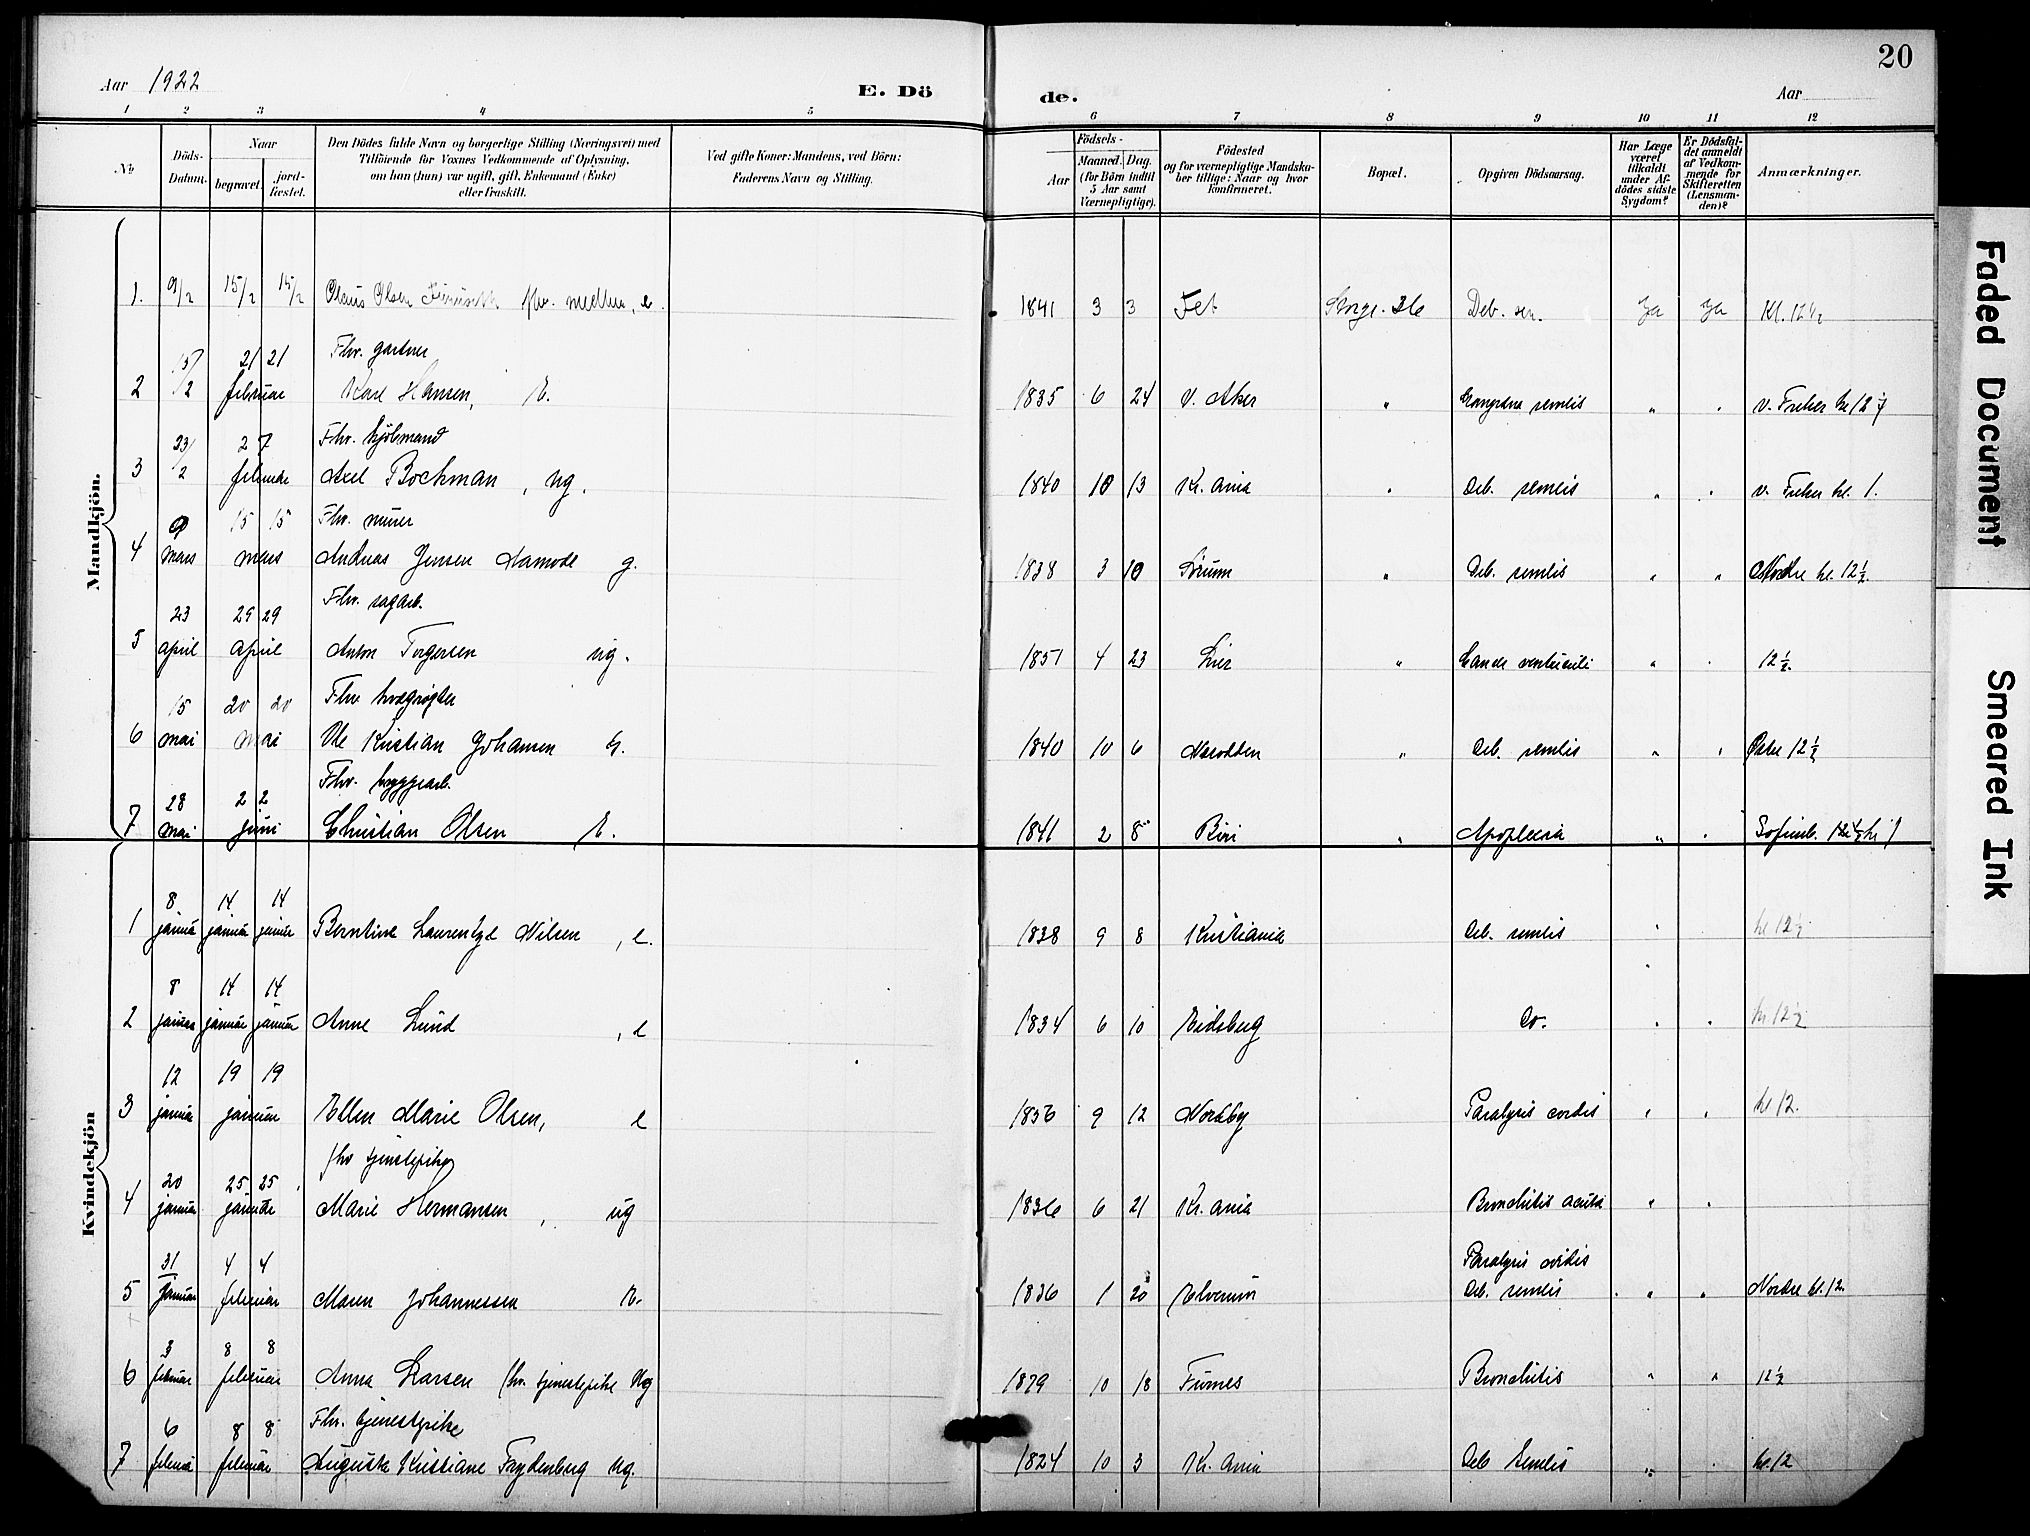 20
Aar 1922
E. Dö
de.
Aar
1 2 3 4 5 6 7 8 9 10 11 12
No
Döds-
Datum.
Naar
begravet.
jord-
fæstet.
Den Dödes fulde Navn og borgerlige Stilling (Næringsvei) med
Tilföiende for Voxnes Vedkommende af Oplysning,
om han (hun) var ugift, gift, Enkemand (Enke)
eller fraskilt.
Ved gifte Koner: Mandens, ved Börn:
Faderens Navn og Stilling.
Födsels-
Aar
Maaned. Dag.
(for Börn indtil
5 Aar samt
Værnepligtige).
Födested
og for værnepligtige Mandska-
ber tillige: Naar og hvor
konfirmeret.
Bopæl.
Opgiven Dödsaarsag.
Har Læge
været
tilkaldt
under Af-
dödes sidste
Sygdom?
Er Dödsfal-
det anmeldt
af Vedkom-
mende for
Skifteretten
(Lensman-
den)?
Anmærkninger.
Mandkjön.
1. 9/2 15/2 15/2 Olaus Olsen fhv. e. 1841 3 3 Fet 36 Deb. sen. Ja Ja Kl. 12 1/2
Fhv. gartner
2 15/2 21 21 februar Karl Hansen, E. 1835 6 24 V. Aker " senilis " " v. Freker kl 12
Fhv. hjölmand
3 23/2 27 februar Axel Bochman, ug. 1840 10 13 Kr.ania " Deb. senilis " " v. Freker kl. 1.
Fhv. murer
4 9 mars 15 15 mars Andreas Jensen Aamodt g. 1838 3 10 Sörum " Deb. senilis " " Nordre kl. 12 1/2.
Fhv. sagarb.
5 23 april 29 29 april Anton Torgersen ug. 1851 4 23 Lier " Cancer ventriculi " " 12 1/2.
Fhv
6 15 mai 20 20 mai Ole Kristian Johansen E. 1840 10 6 Næsodden " Deb. senilis " " Østre 12 1/2
Fhv. bryggearb.
7 28 mai 2 2 juni Christian Olsen E. 1841 2 8 Biri " Apoplexia " " Sofienb. kl 1
Kvindekjön
1 8 januar 14 januar 14 januar Berntine Laurentze Nilsen, e. 1838 9 8 Kristiania Deb. senilis " kl 12 1/2
2 8 januar 14 januar 14 januar Anne Lund, e 1834 6 10 Eidsberg Do. " " kl. 12 1/2
3 12 januar 19 19 januar Ellen Marie Olsen, e 1836 9 12 Nordby Paralysis cordis " " kl 12.
fhv tjenestepike
4 20 januar 25 25 januar Marie Hermansen, ug 1836 6 21 Kr.ania Bronchitis acuta " "
Paralysis cordis
5 31 januar 4 4 februar Maren Johannessen E. 1836 1 20 Elverum Deb. senilis " " Nordre kl. 12.
6 3 februar 8 8 februar Anna Larsen fhv. tjenestepike Ug 1879 10 18 Furnes Bronchitis " " 12 1/2
Fhv. tjenestepike
7 6 februar 8 8 februar Auguste Kristiane Frydenberg ug. 1824 10 3 Kr.ania Deb senilis " " kl. 12
Faded Document
Smeared Ink